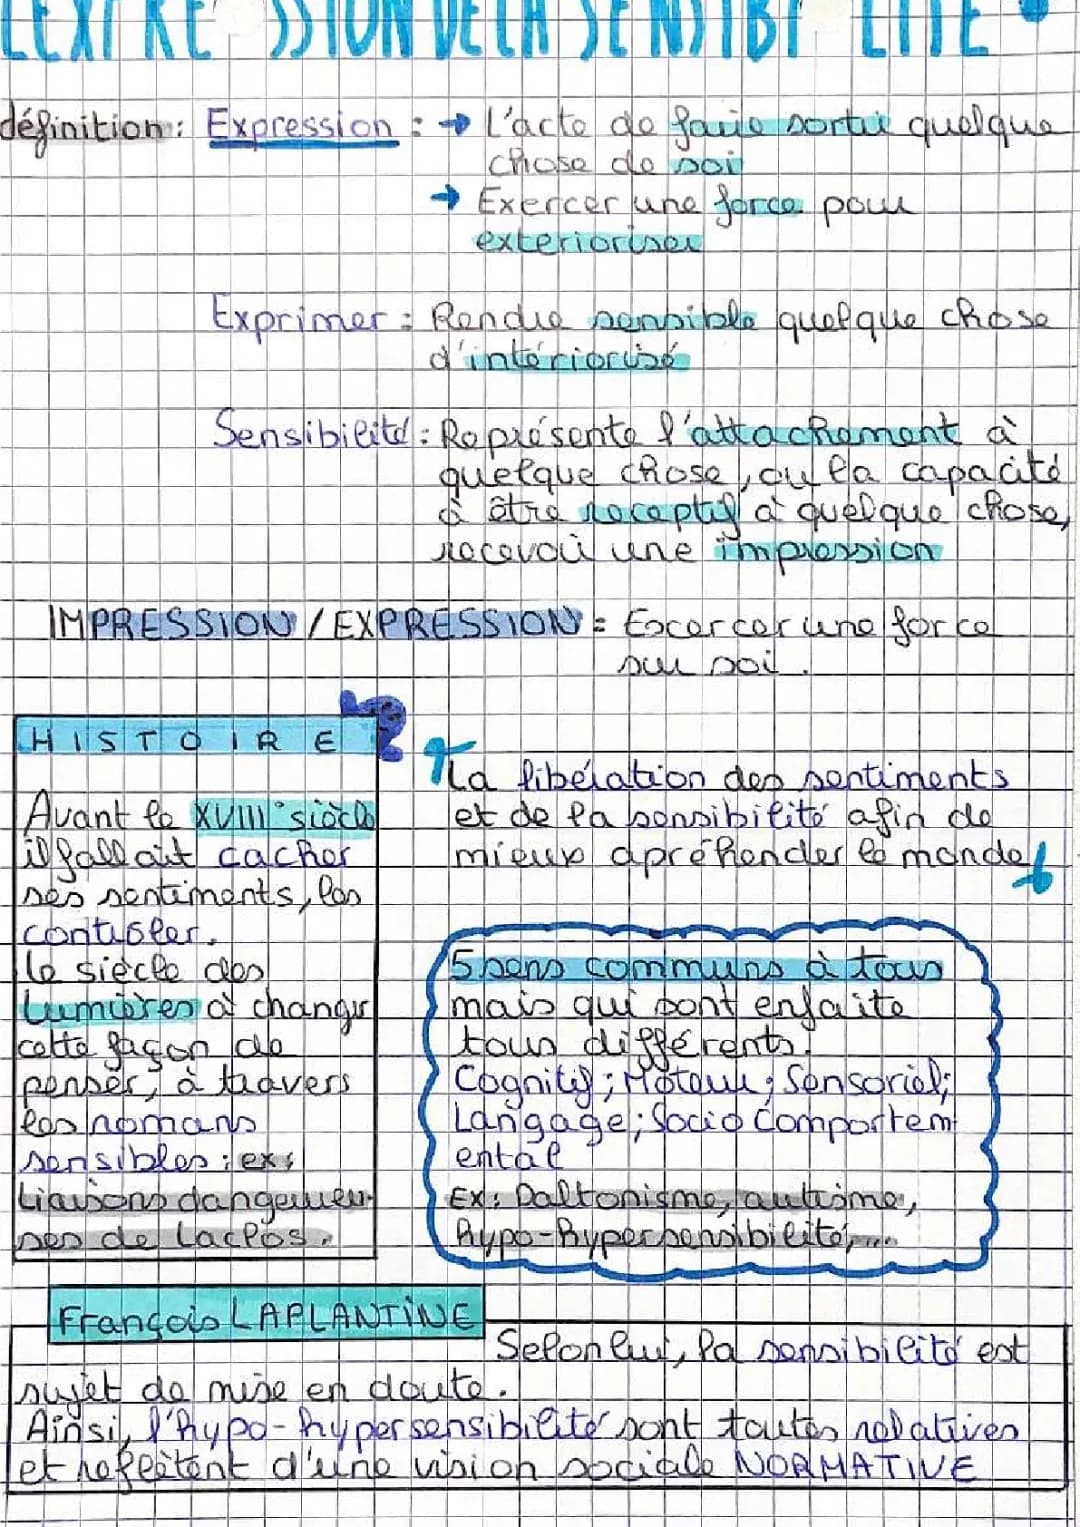 L'EXPRESSION DE LA SENSIBILITE
définition : Expression : → L'acte de faire sortir quelque
chose de soi
→ Exercer une force pour
exterioriser
Exprimer : Rendre sensible quelque chose
d'intériorisé
Sensibilité : Représente l'attachement à
quelque chose, ou la capacité
à être receptif à quelque chose,
recevoir une impression
IMPRESSION / EXPRESSION = Excercer une force
sur soi.
HISTOIRE
Avant le XVIII° siècle
il fallait cacher
ses sentiments, les
contrôler.
le siècle des
Lumières à changer
cette façon de
penser, à travers
les romans
sensibles : ex:
Liaisons dangereu-
ses de Laclos.
La libération des sentiments
et de la sensibilité afin de
mieux apréhender le monde
5 sens communs à tous
mais qui sont enfaite
tous différents.
Cognitif ; Moteur ; Sensoriel ;
Langage ; Socio Comportem
ental
Ex : Daltonisme, autisme,
hypo-hypersensibilité, ...
François LAPLANTINE
Selon lui, la sensibilité est
sujet de mise en doute.
Ainsi, l'hypo-hypersensibilité sont toutes relatives
et reflètent d'une vision sociale NORMATIVE